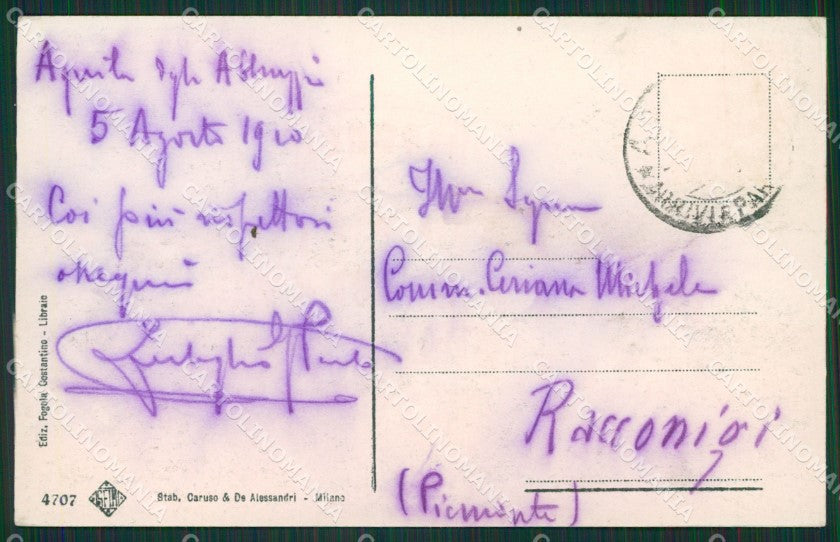 Aquila degli Abruzzi
5 Agosto 1910
Coi più rispettosi
ossequi
Ill.mo Signore
Comm. Ceriana Michele
Racconigi
(Piemonte)
Ediz. Fogola Costantino - Libraio
4707
Stab. Caruso & De Alessandri - Milano
CARTOLINOMANIA